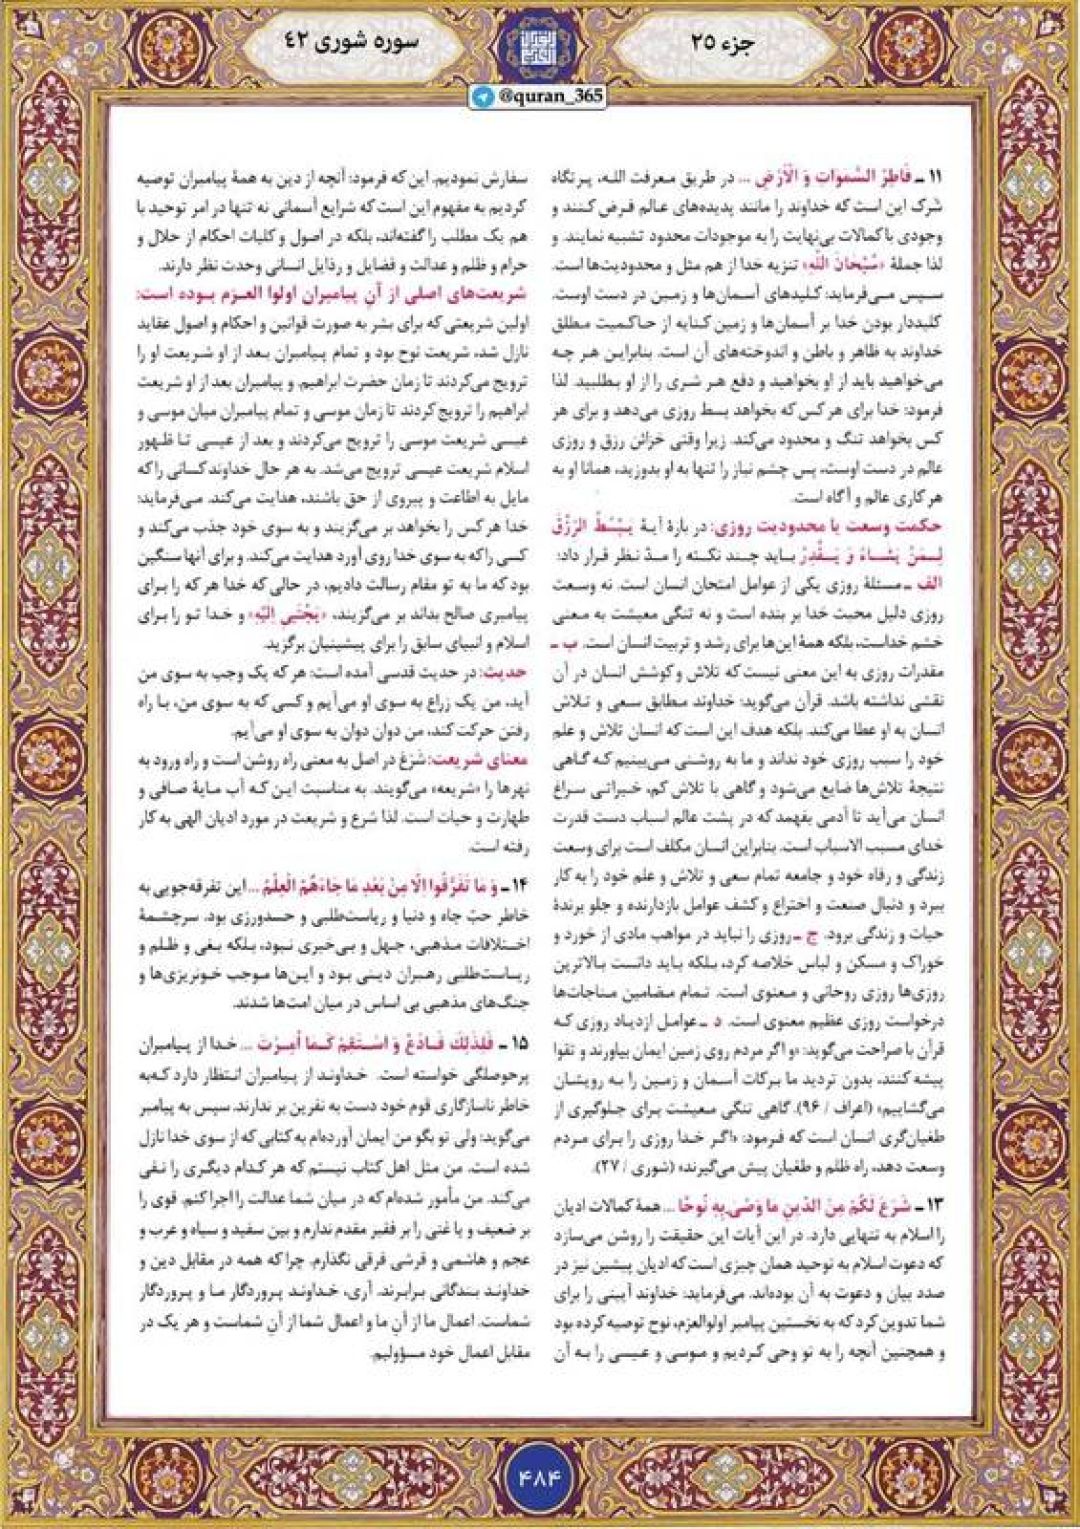 جزء ۲۵
سوره شوری ۴۲
@quran_365
۱۱ ـ فَاطِرُ السَّمٰوَاتِ وَ الْاَرْضِ ... در طریق معرفت الله، پرتگاه
شرک این است که خداوند را مانند پدیده‌های عالم فرض کنند و
وجودی با کمالات بی‌نهایت را به موجودات محدود تشبیه نمایند. و
لذا جملهٔ «سُبْحَانَ اللَّهِ» تنزیه خدا از هم مثل و محدودیت‌ها است.
سپس می‌فرماید: کلیدهای آسمان‌ها و زمین در دست اوست.
کلیددار بودن خدا بر آسمان‌ها و زمین کنایه از حاکمیت مطلق
خداوند به ظاهر و باطن و اندوخته‌های آن است. بنابراین هر چه
می‌خواهید باید از او بخواهید و دفع هر شری را از او بطلبید. لذا
فرمود: خدا برای هر کس که بخواهد بسط روزی می‌دهد و برای هر
کس بخواهد تنگ و محدود می‌کند. زیرا وقتی خزائن رزق و روزی
عالم در دست اوست، پس چشم نیاز را تنها به او بدوزید، همانا او به
هر کاری عالم و آگاه است.
حکمت وسعت یا محدودیت روزی: در بارهٔ آیهٔ یَبْسُطُ الرِّزْقَ
لِمَنْ یَشَاءُ وَ یَقْدِرُ باید چند نکته را مدّ نظر قرار داد:
الف ـ مسئلهٔ روزی یکی از عوامل امتحان انسان است. نه وسعت
روزی دلیل محبت خدا بر بنده است و نه تنگی معیشت به معنی
خشم خداست، بلکه همهٔ این‌ها برای رشد و تربیت انسان است. ب ـ
مقدرات روزی به این معنی نیست که تلاش و کوشش انسان در آن
نقشی نداشته باشد. قرآن می‌گوید: خداوند مطابق سعی و تلاش
انسان به او عطا می‌کند. بلکه هدف این است که انسان تلاش و علم
خود را سبب روزی خود نداند و ما به روشنی می‌بینیم که گاهی
نتیجهٔ تلاش‌ها ضایع می‌شود و گاهی با تلاش کم، خیراتی سراغ
انسان می‌آید تا آدمی بفهمد که در پشت عالم اسباب دست قدرت
خدای مسبب الاسباب است. بنابراین انسان مکلف است برای وسعت
زندگی و رفاه خود و جامعه تمام سعی و تلاش و علم خود را به کار
ببرد و دنبال صنعت و اختراع و کشف عوامل بازدارنده و جلو برندهٔ
حیات و زندگی برود. ج ـ روزی را نباید در مواهب مادی از خورد و
خوراک و مسکن و لباس خلاصه کرد، بلکه باید دانست بالاترین
روزی‌ها روزی روحانی و معنوی است. تمام مضامین مناجات‌ها
درخواست روزی عظیم معنوی است. د ـ عوامل ازدیاد روزی که
قرآن با صراحت می‌گوید: «و اگر مردم روی زمین ایمان بیاورند و تقوا
پیشه کنند، بدون تردید ما برکات آسمان و زمین را به رویشان
می‌گشاییم» (اعراف / ۹۶). گاهی تنگی معیشت برای جلوگیری از
طغیان‌گری انسان است که فرمود: «اگر خدا روزی را برای مردم
وسعت دهد، راه ظلم و طغیان پیش می‌گیرند» (شوری / ۲۷).
۱۳ ـ شَرَعَ لَکُمْ مِنَ الدِّینِ مَا وَصّٰی بِهِ نُوحًا ... همهٔ کمالات ادیان
را اسلام به تنهایی دارد. در این آیات این حقیقت را روشن می‌سازد
که دعوت اسلام به توحید همان چیزی است که ادیان پیشین نیز در
صدد بیان و دعوت به آن بوده‌اند. می‌فرماید: خداوند آیینی را برای
شما تدوین کرد که به نخستین پیامبر اولوالعزم، نوح توصیه کرده بود
و همچنین آنچه را به تو وحی کردیم و موسی و عیسی را به آن
سفارش نمودیم. این که فرمود: آنچه از دین به همهٔ پیامبران توصیه
کردیم به مفهوم این است که شرایع آسمانی نه تنها در امر توحید با
هم یک مطلب را گفته‌اند، بلکه در اصول و کلیات احکام از حلال و
حرام و ظلم و عدالت و فضایل و رذایل انسانی وحدت نظر دارند.
شریعت‌های اصلی از آنِ پیامبران اولوا العزم بوده است:
اولین شریعتی که برای بشر به صورت قوانین و احکام و اصول عقاید
نازل شد، شریعت نوح بود و تمام پیامبران بعد از او شریعت او را
ترویج می‌کردند تا زمان حضرت ابراهیم. و پیامبران بعد از او شریعت
ابراهیم را ترویج کردند تا زمان موسی و تمام پیامبران میان موسی و
عیسی شریعت موسی را ترویج می‌کردند و بعد از عیسی تا ظهور
اسلام شریعت عیسی ترویج می‌شد. به هر حال خداوند کسانی را که
مایل به اطاعت و پیروی از حق باشند، هدایت می‌کند. می‌فرماید:
خدا هر کس را بخواهد بر می‌گزیند و به سوی خود جذب می‌کند و
کسی را که به سوی خدا روی آورد هدایت می‌کند. و برای آنها سنگین
بود که ما به تو مقام رسالت دادیم، در حالی که خدا هر که را برای
پیامبری صالح بداند بر می‌گزیند، «یَجْتَبی اِلَیْهِ» و خدا تو را برای
اسلام و انبیای سابق را برای پیشینیان برگزید.
حدیث: در حدیث قدسی آمده است: هر که یک وجب به سوی من
آید، من یک زراع به سوی او می‌آیم و کسی که به سوی من، با راه
رفتن حرکت کند، من دوان دوان به سوی او می‌آیم.
معنای شریعت: شَرْعْ در اصل به معنی راه روشن است و راه ورود به
نهرها را «شریعه» می‌گویند. به مناسبت این که آب مایهٔ صافی و
طهارت و حیات است. لذا شرع و شریعت در مورد ادیان الهی به کار
رفته است.
۱۴ ـ وَ مَا تَفَرَّقُوا اِلَّا مِنْ بَعْدِ مَا جَاءَهُمُ الْعِلْمُ ... این تفرقه‌جویی به
خاطر حبّ جاه و دنیا و ریاست‌طلبی و حسدورزی بود. سرچشمهٔ
اختلافات مذهبی، جهل و بی‌خبری نبود، بلکه بغی و ظلم و
ریاست‌طلبی رهبران دینی بود و این‌ها موجب خونریزی‌ها و
جنگ‌های مذهبی بی اساس در میان امت‌ها شدند.
۱۵ ـ فَلِذٰلِکَ فَادْعُ وَ اسْتَقِمْ کَمَا اُمِرْتَ ... خدا از پیامبران
پرحوصلگی خواسته است. خداوند از پیامبران انتظار دارد که به
خاطر ناسازگاری قوم خود دست به نفرین بر ندارند. سپس به پیامبر
می‌گوید: ولی تو بگو من ایمان آورده‌ام به کتابی که از سوی خدا نازل
شده است. من مثل اهل کتاب نیستم که هر کدام دیگری را نفی
می‌کند. من مأمور شده‌ام که در میان شما عدالت را اجرا کنم. قوی را
بر ضعیف و یا غنی را بر فقیر مقدم ندارم و بین سفید و سیاه و عرب و
عجم و هاشمی و قرشی فرقی نگذارم. چرا که همه در مقابل دین و
خداوند بندگانی برابرند. آری، خداوند پروردگار ما و پروردگار
شماست. اعمال ما از آنِ ما و اعمال شما از آنِ شماست و هر یک در
مقابل اعمال خود مسؤولیم.
۴۸۴